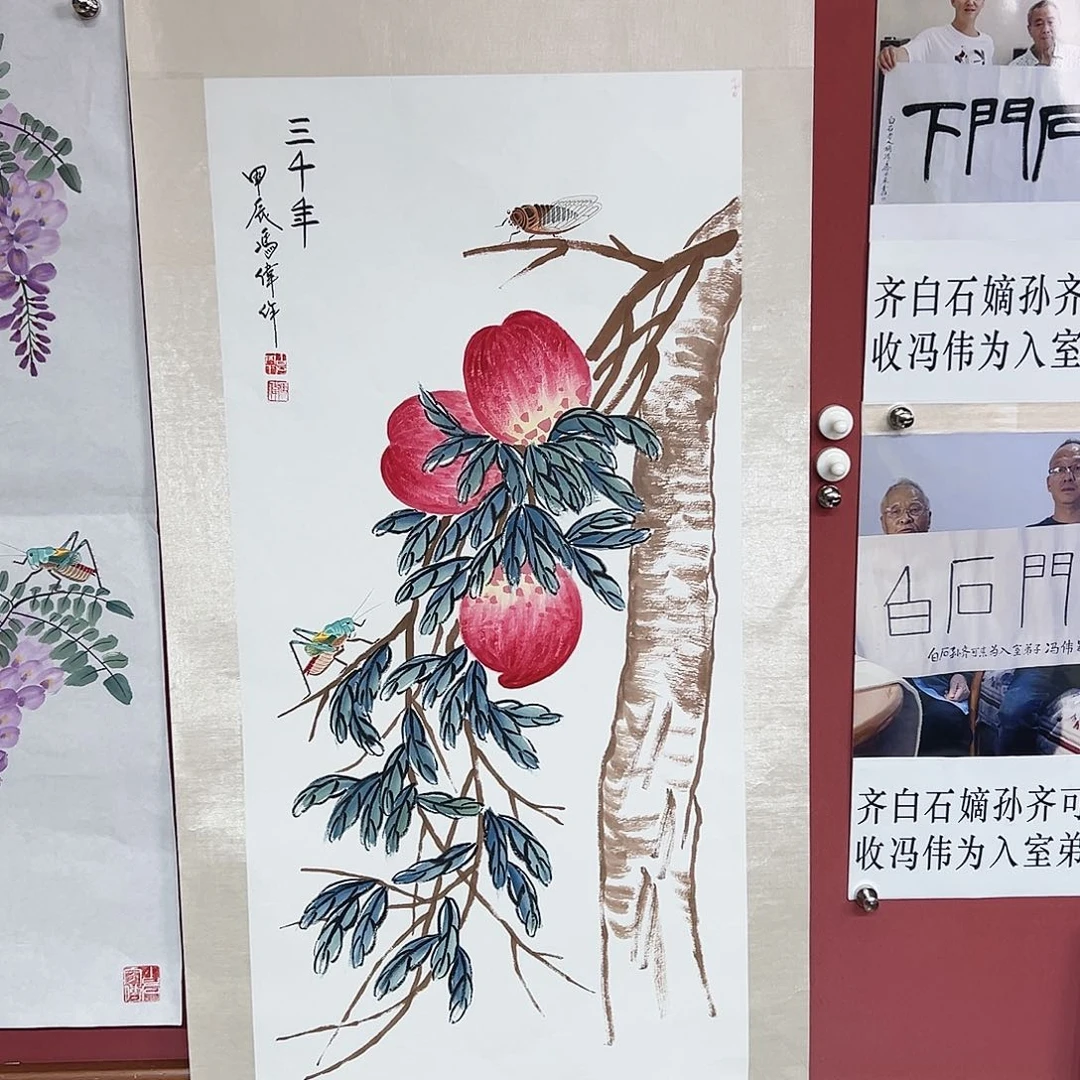 三千年
甲辰馮偉作
下門石
齐白石嫡孙齐
收冯伟为入室
白石門
白石孙齐可来为入室弟子冯伟
齐白石嫡孙齐可
收冯伟为入室弟